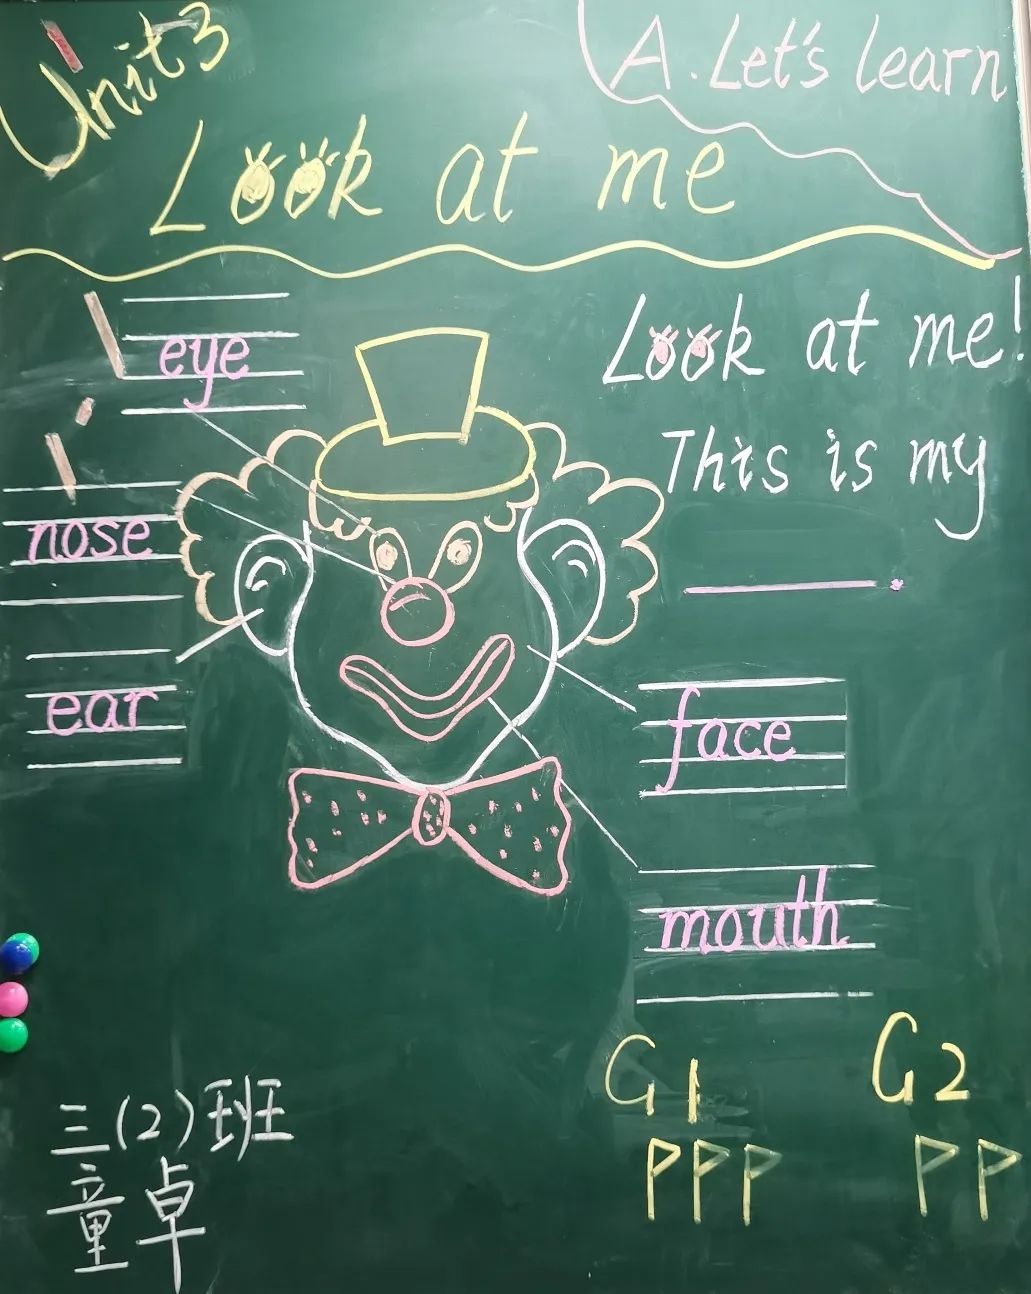 Unit 3
A. Let's learn
Look at me
eye
nose
ear
Look at me!
This is my
.
face
mouth
G1
G2
PPP
PP
三(2)班
童卓